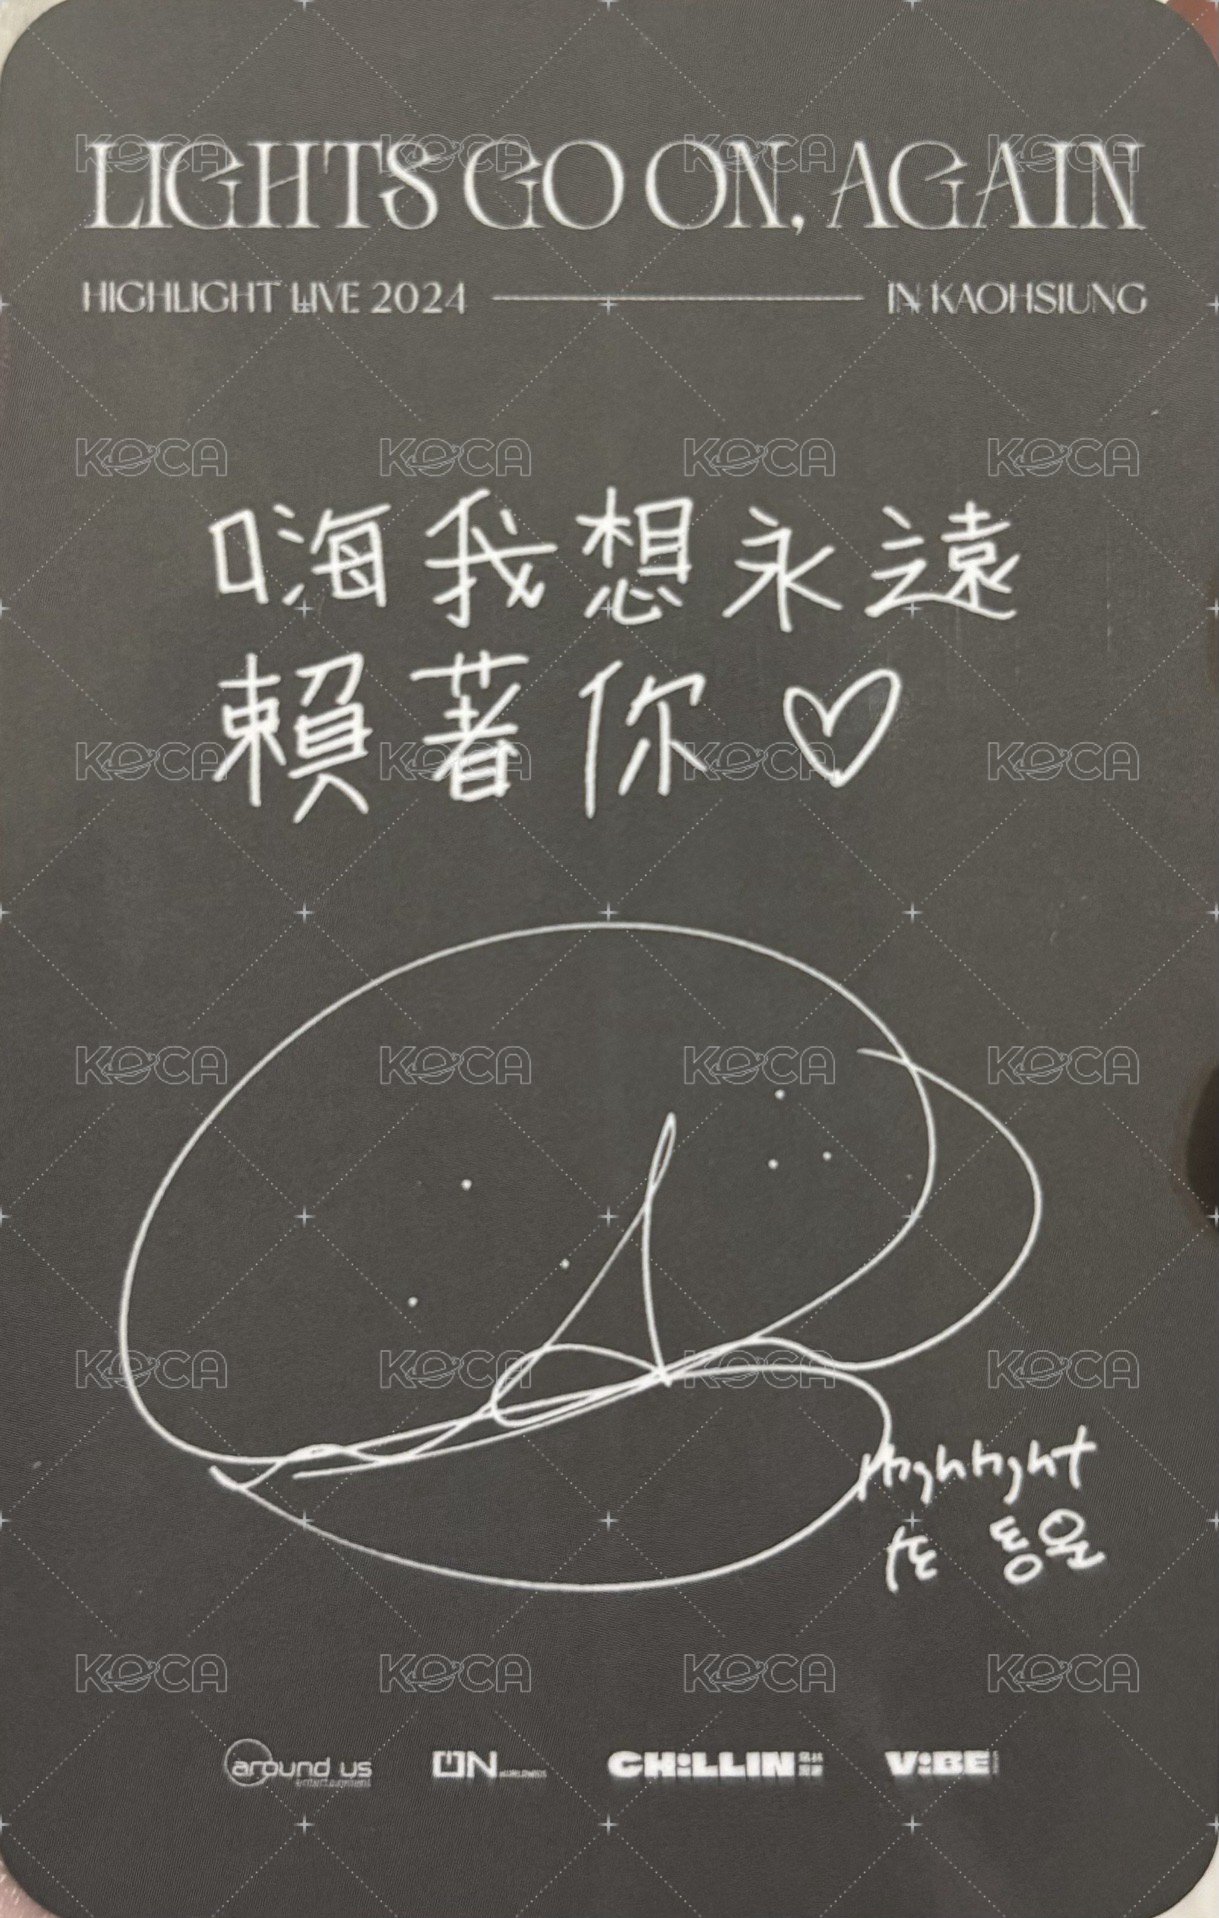 LIGHTS GO ON, AGAIN
HIGHLIGHT LIVE 2024 IN KAOHSIUNG
嗨我想永遠
賴著你♡
Highlight
손 동운
around us
entertainment
ON
CHILLIN
VIBE
KOCA